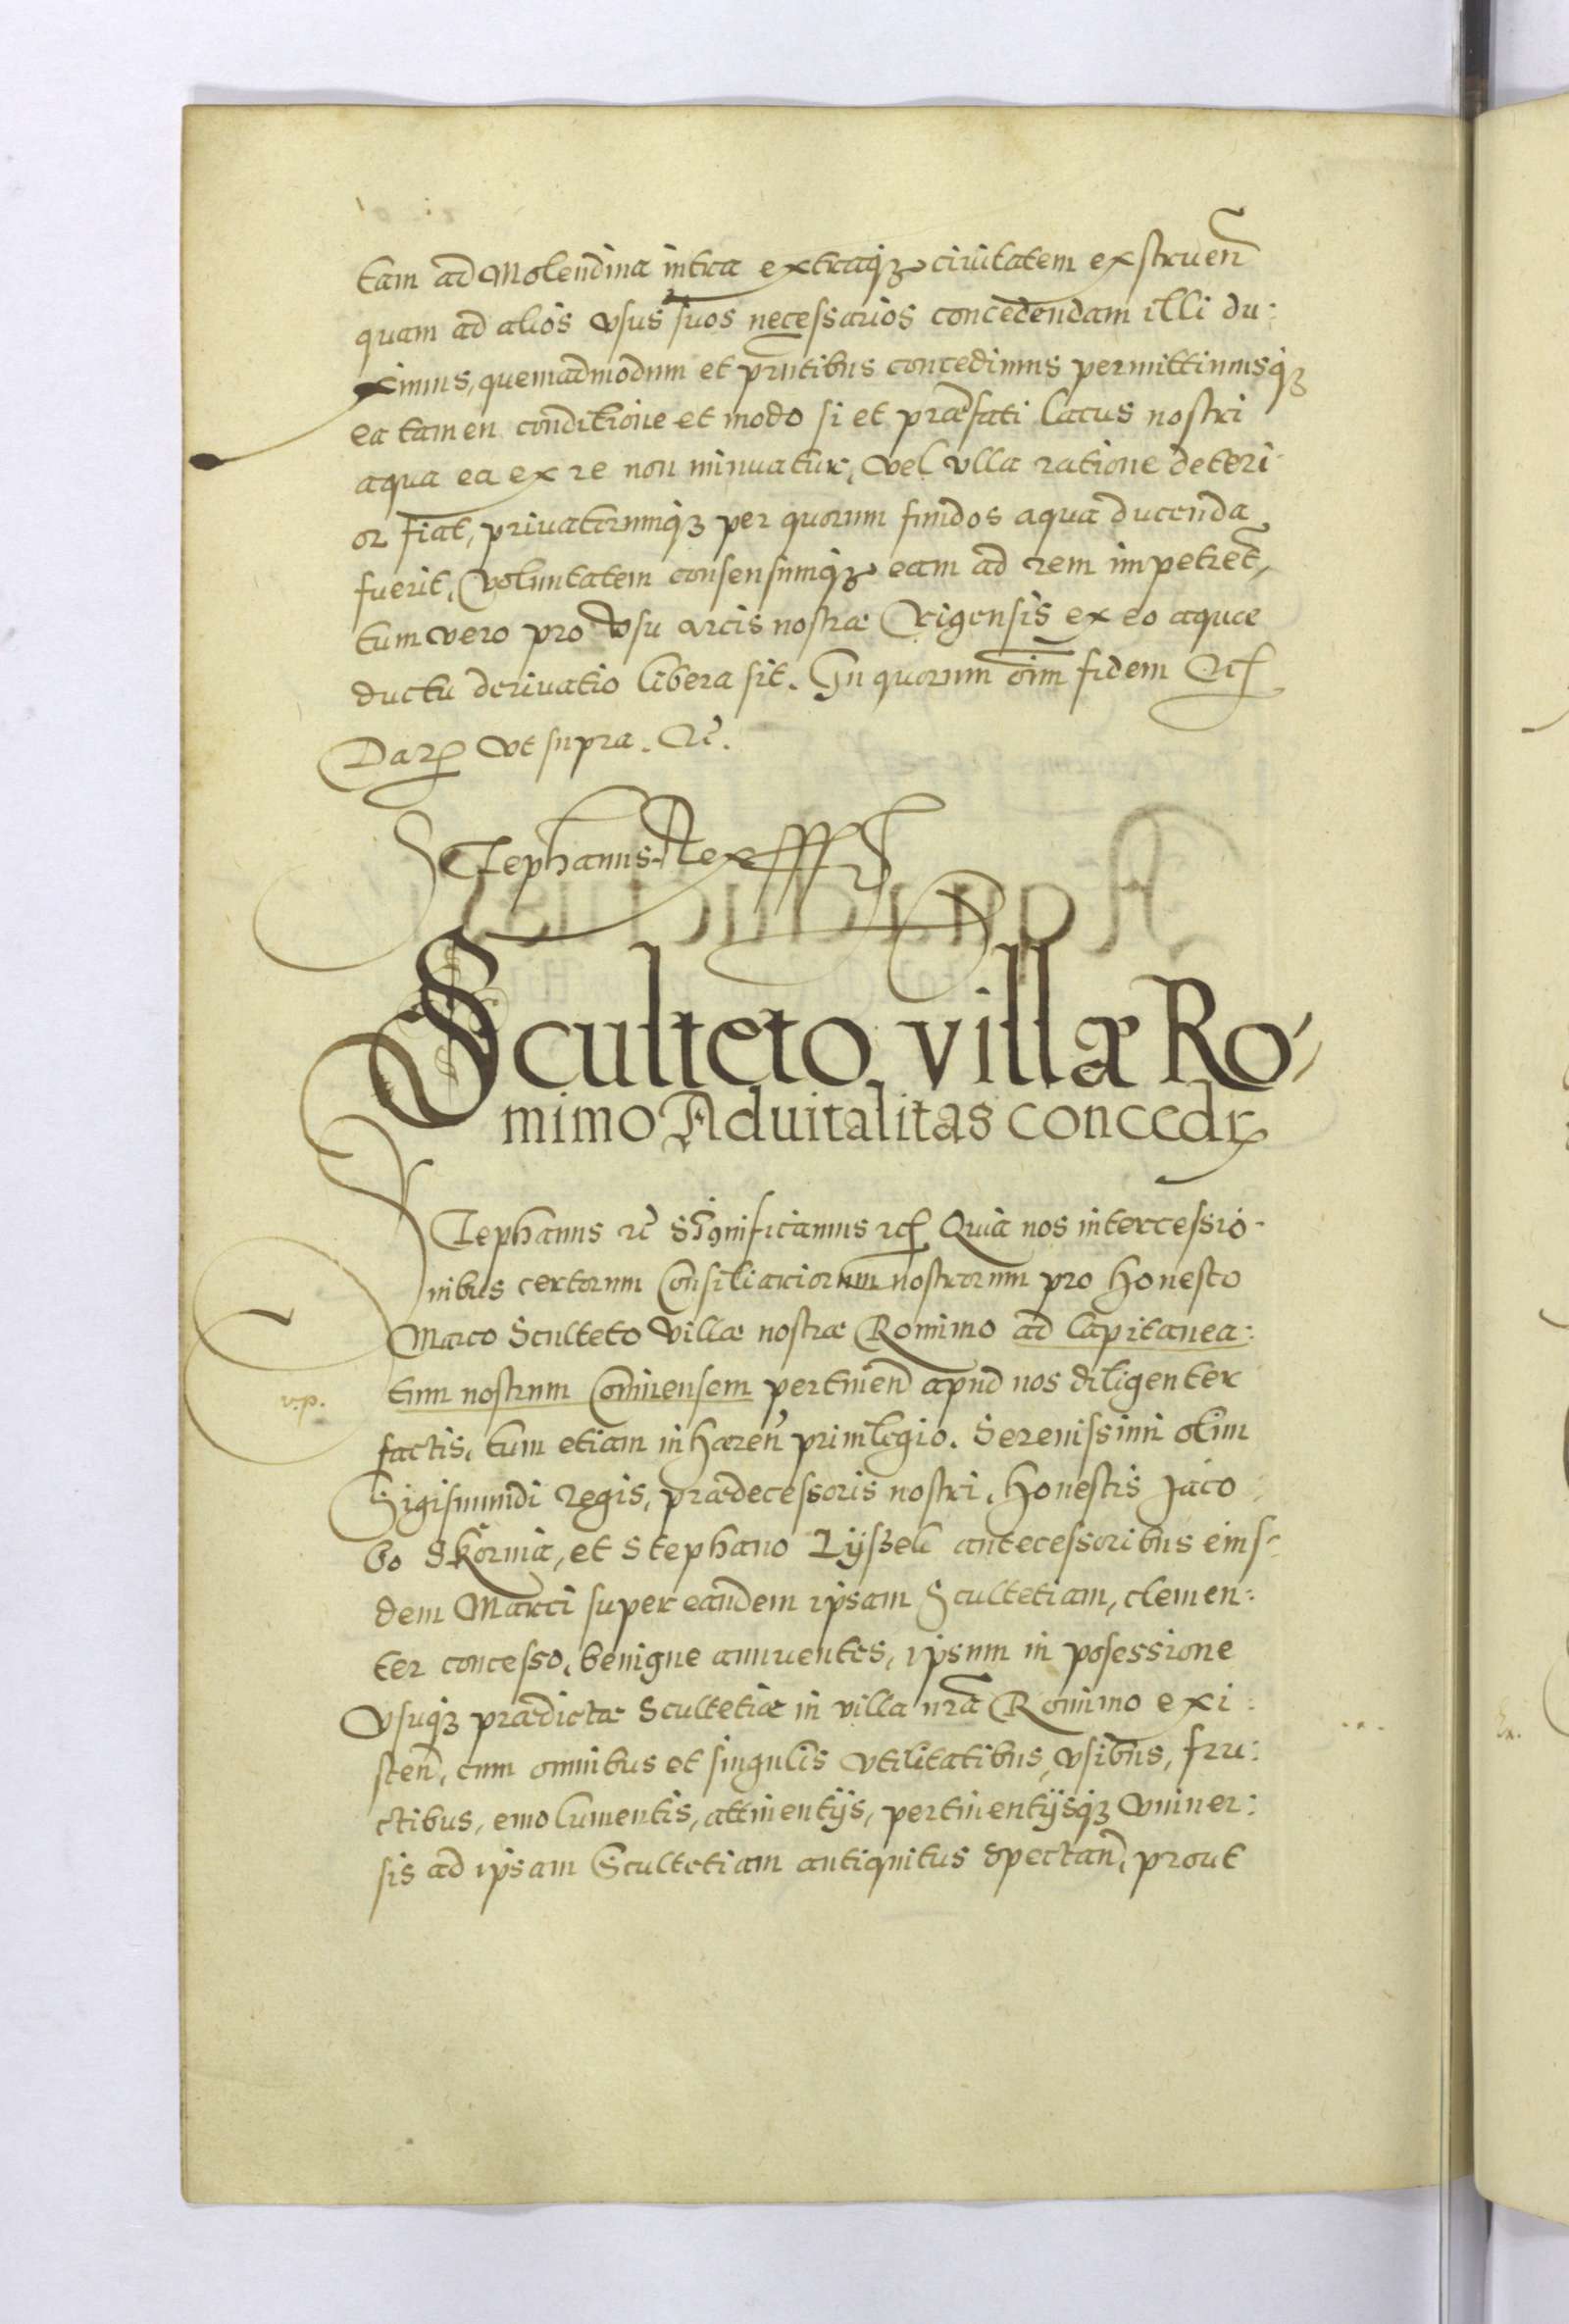 tam ad Molendina intra extraqꝫ ciuitatem exstruen̄
quam ad alios vsus suos necessarios concedendam illi du:
ximus, quemadmodum et pr̄ntibus concedimus permittimusqꝫ
ea tamen conditione et modo si et præfati lacus nostri
aqua ea ex re non minuatur, vel vlla ratione deteri-
or fiat, priuatorumqꝫ per quorum fundos aqua ducenda
fuerit, voluntatem consensumqꝫ eam ad rem impetret,
tum vero pro vsu arcis nostræ Rigensis ex eo aquæ
ductu deriuatio libera sit. In quorum om̄ fidem Etc
Datꝝ vt supra. Etc̄.
Stephanus Rex
Sculteto villæ Ro,
mimo Aduitalitas concedꝝ
Stephanus rc̄ Significamus etc Quia nos intercessio-
nibus certorum Consiliariorum nostrorum pro Honesto
Marco Sculteto villæ nostræ Romimo ad Capitanea:
v.p.
tum nostrum Coninensem pertinen̄ apud nos diligenter
factis, tum etiam inhæren̄ priuilegio. Serenissimi olim
Sigismundi Regis, prædecessoris nostri, Honestis Jaco
bo Skornia, et Stephano Lyszek antecessoribus eius-
dem Marci super eandem ipsam Scultetiam, clemen:
ter concesso, benigne annuentes, ipsum in posessione
vsuqꝫ prædictæ Scultetiæ in villa nr̄a Romimo exi:
sten̄, cum omnibus et singulis vtilitatibus, vsibus, fru:
ctibus, emolumentis, attinentijs, pertinentijsqꝫ vniuer:
sis ad ipsam Scultetiam antiquitus spectan̄, prout